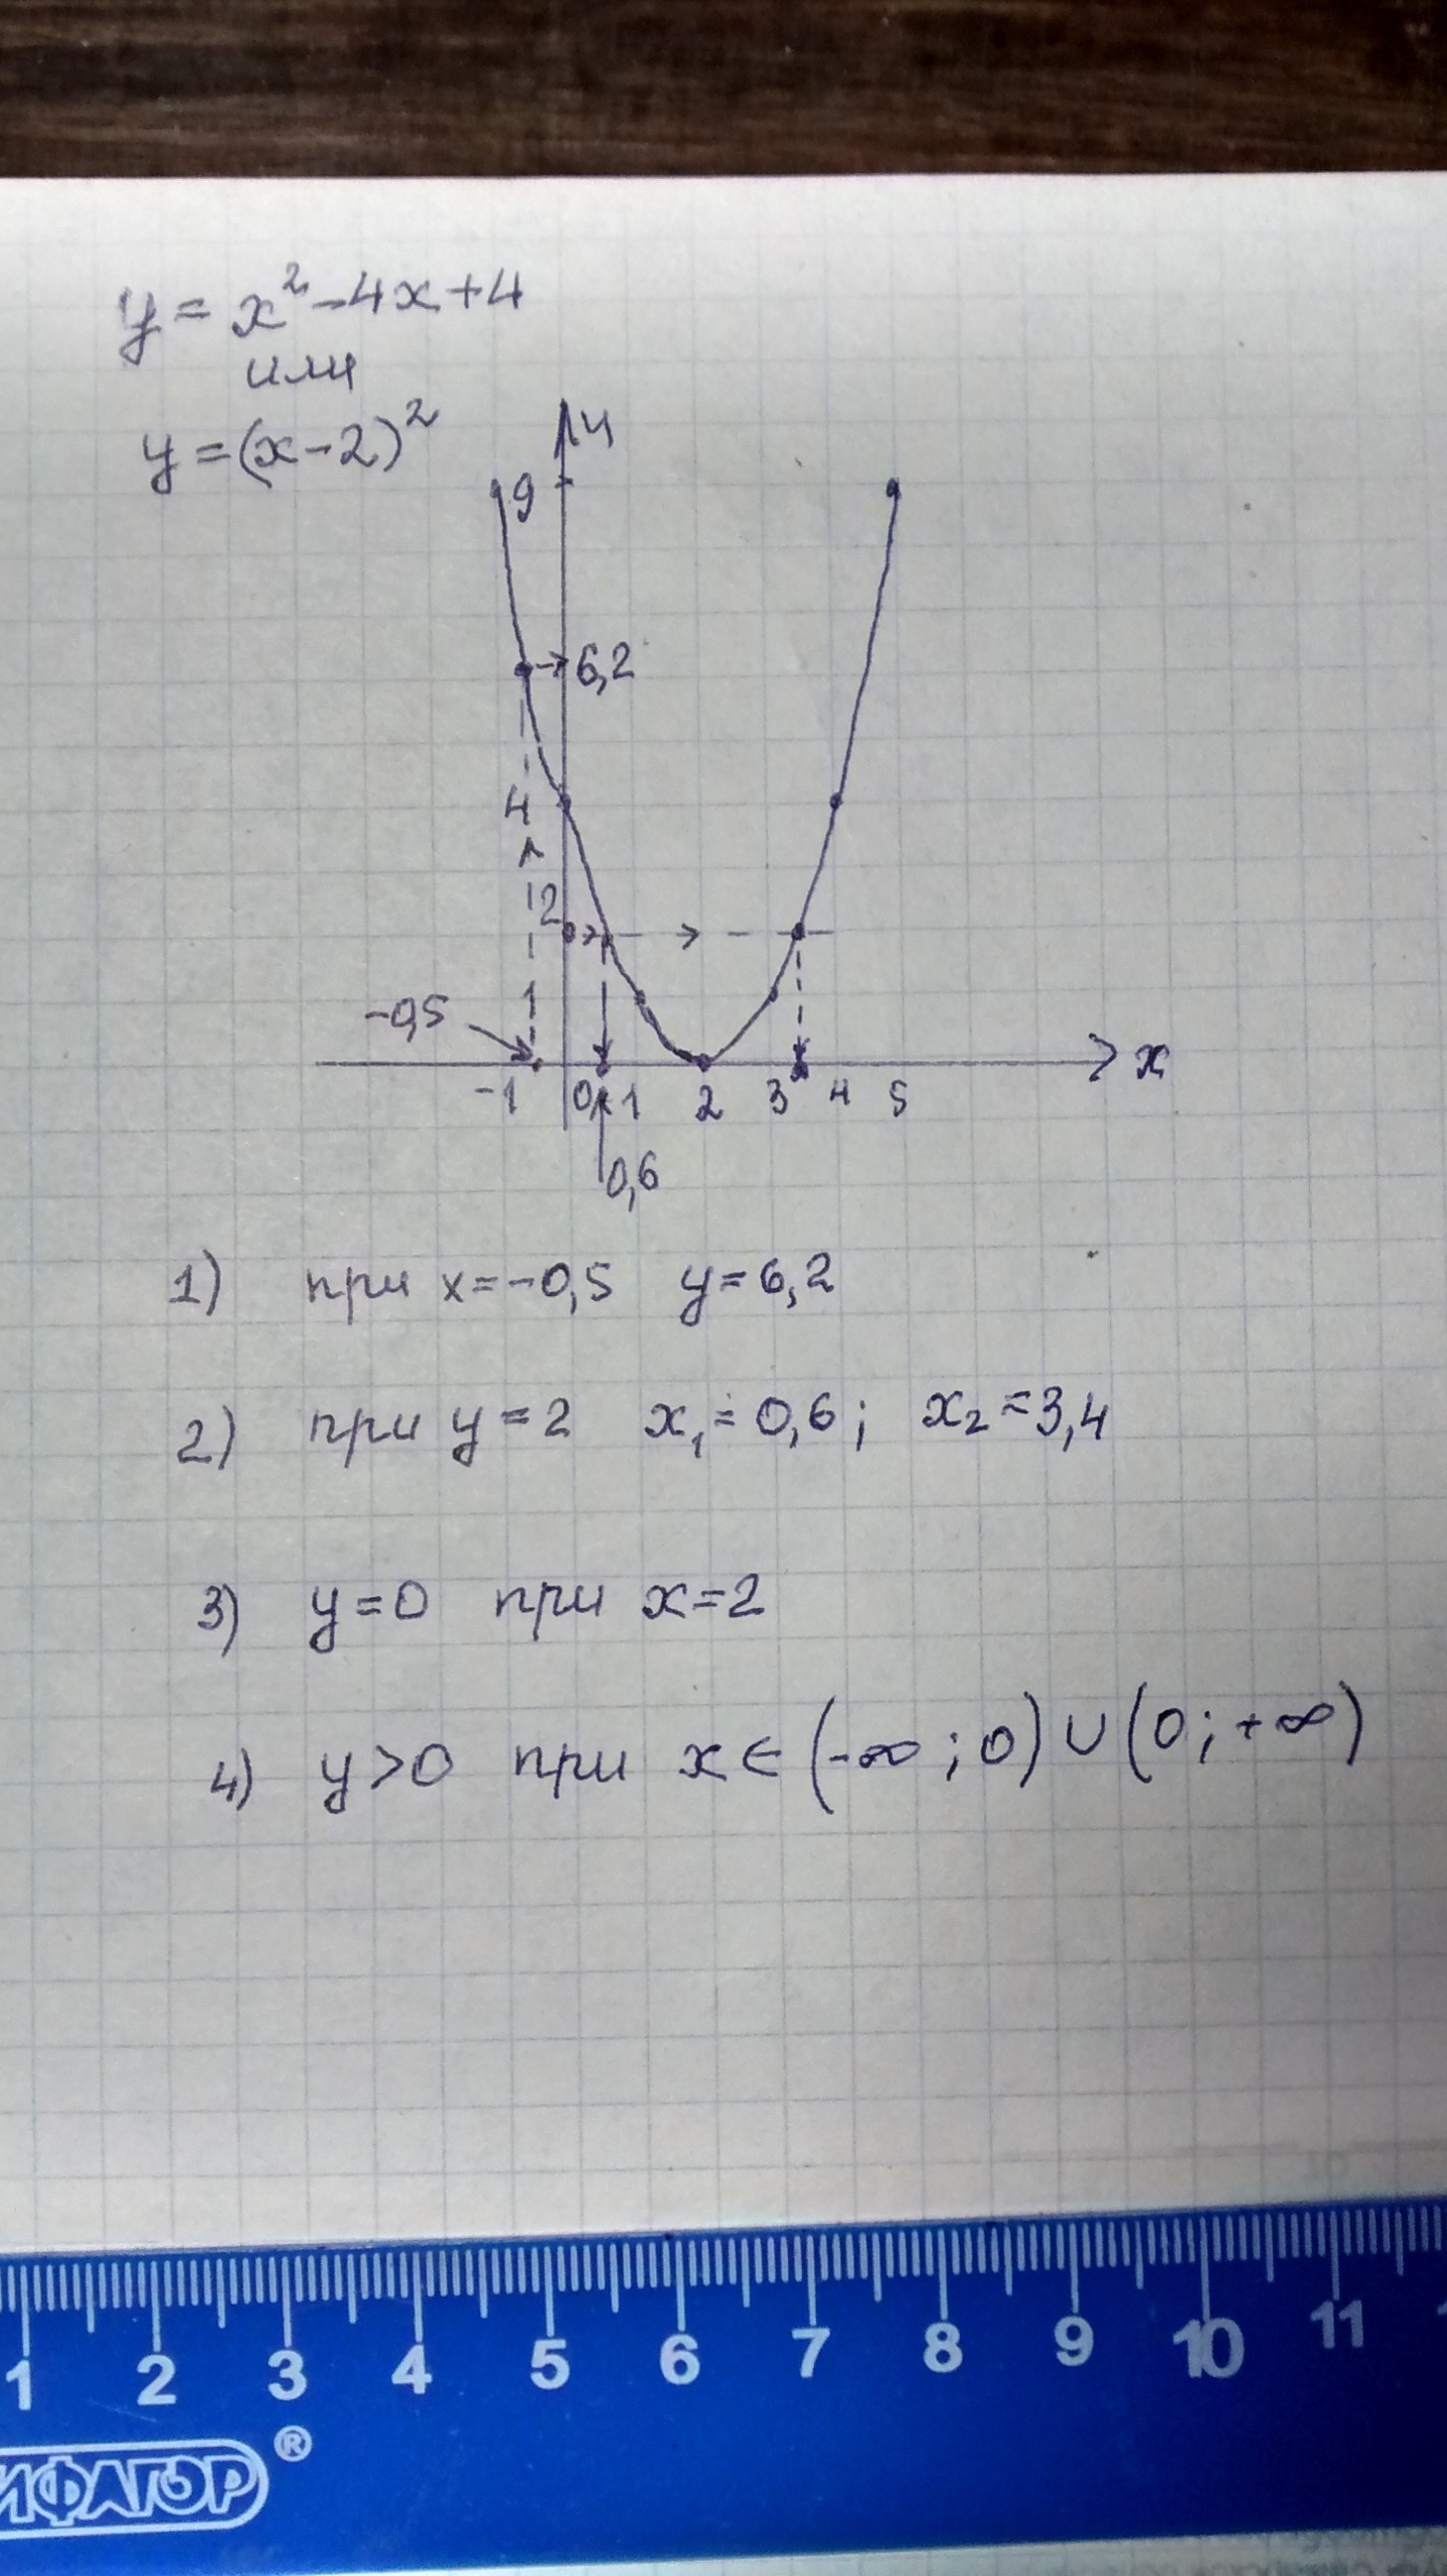 y = x² - 4x + 4
или
y = (x - 2)²
y
9
6,2
4
2
1
-0,5
-1 0 1 2 3 4 5
x
0,6
1) при x = -0,5 y = 6,2
2) при y = 2 x₁ = 0,6; x₂ = 3,4
3) y = 0 при x = 2
4) y > 0 при x ∈ (-∞; 0) ∪ (0; +∞)
1 2 3 4 5 6 7 8 9 10 11
ИФАГОР ®